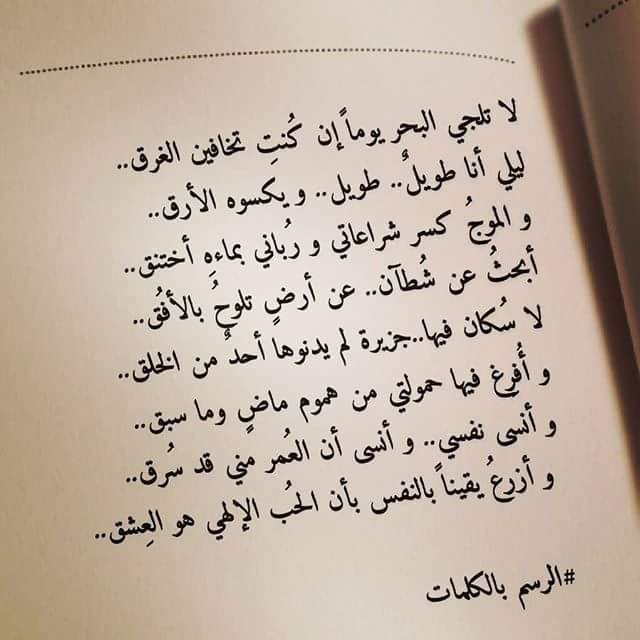 لا تلجي البحر يوماً إن كُنتِ تخافين الغرق..
ليلي أنا طويلٌ.. طويل.. و يكسوه الأرق..
و الموجُ كسر شراعاتي و رُباني بماءِهِ أختنق..
أبحثُ عن شُطآن.. عن أرضٍ تلوحُ بالأفُق..
لا سُكان فيها..جزيرة لم يدنوها أحدٌ من الخلق..
و أُفرغ فيها حمولتي من هموم ماضٍ وما سبق..
و أنسى نفسي.. و أنسى أن العُمر مني قد سُرق..
و أزرعُ يقيناً بالنفس بأن الحُب الإلهي هو العِشق..
#الرسم بالكلمات